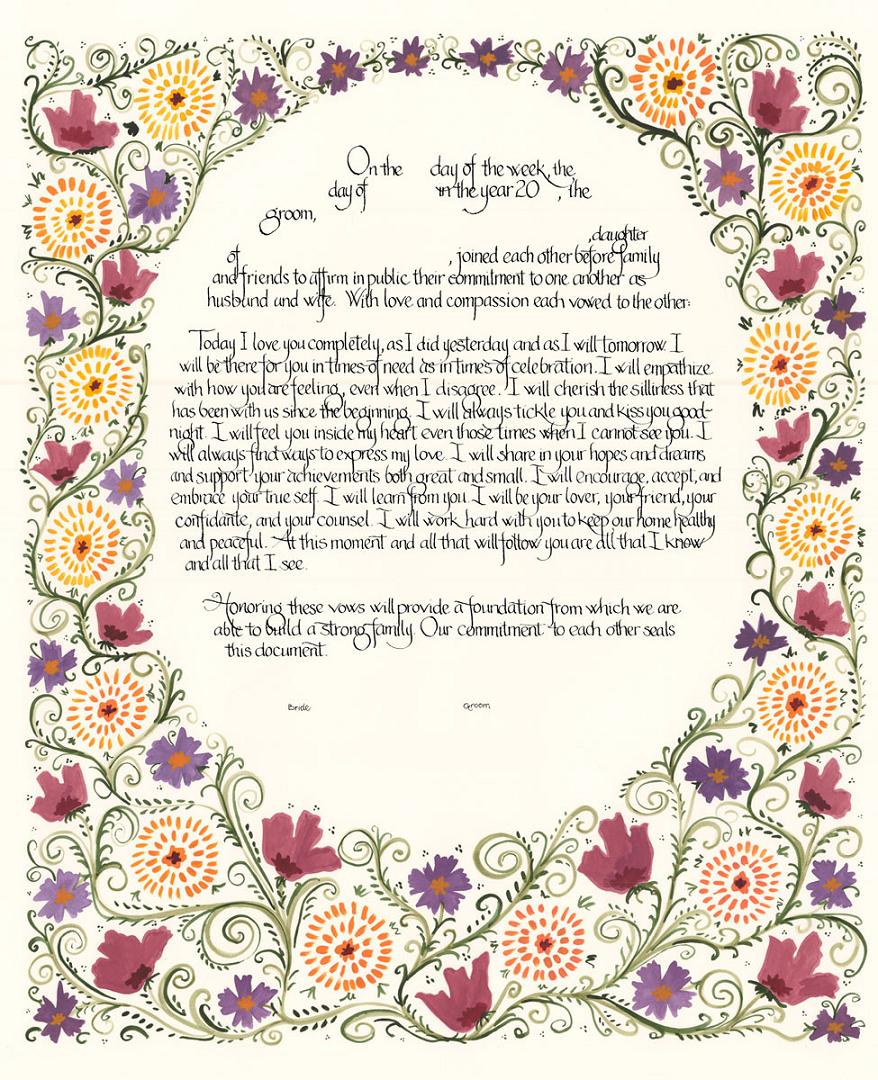 On the day of the week, the
day of in the year 20 , the
groom,
, daughter
of , joined each other before family
and friends to affirm in public their commitment to one another as
husbund und wife. With love and compassion each vowed to the other:
Today I love you completely, as I did yesterday and as I will tomorrow. I
will be there for you in times of need as in times of celebration. I will empathize
with how you are feeling, even when I disagree. I will cherish the silliness that
has been with us since the beginning. I will always tickle you and kiss you good-
night. I will feel you inside my heart even those times when I cannot see you. I
will always find ways to express my love. I will share in your hopes and dreams
and support your achievements both great and small. I will encourage, accept, and
embrace your true self. I will learn from you. I will be your lover, your friend, your
confidante, and your counsel. I will work hard with you to keep our home healthy
and peaceful. At this moment and all that will follow you are all that I know
and all that I see.
Honoring these vows will provide a foundation from which we are
able to build a strong family. Our commitment to each other seals
this document.
Bride Groom